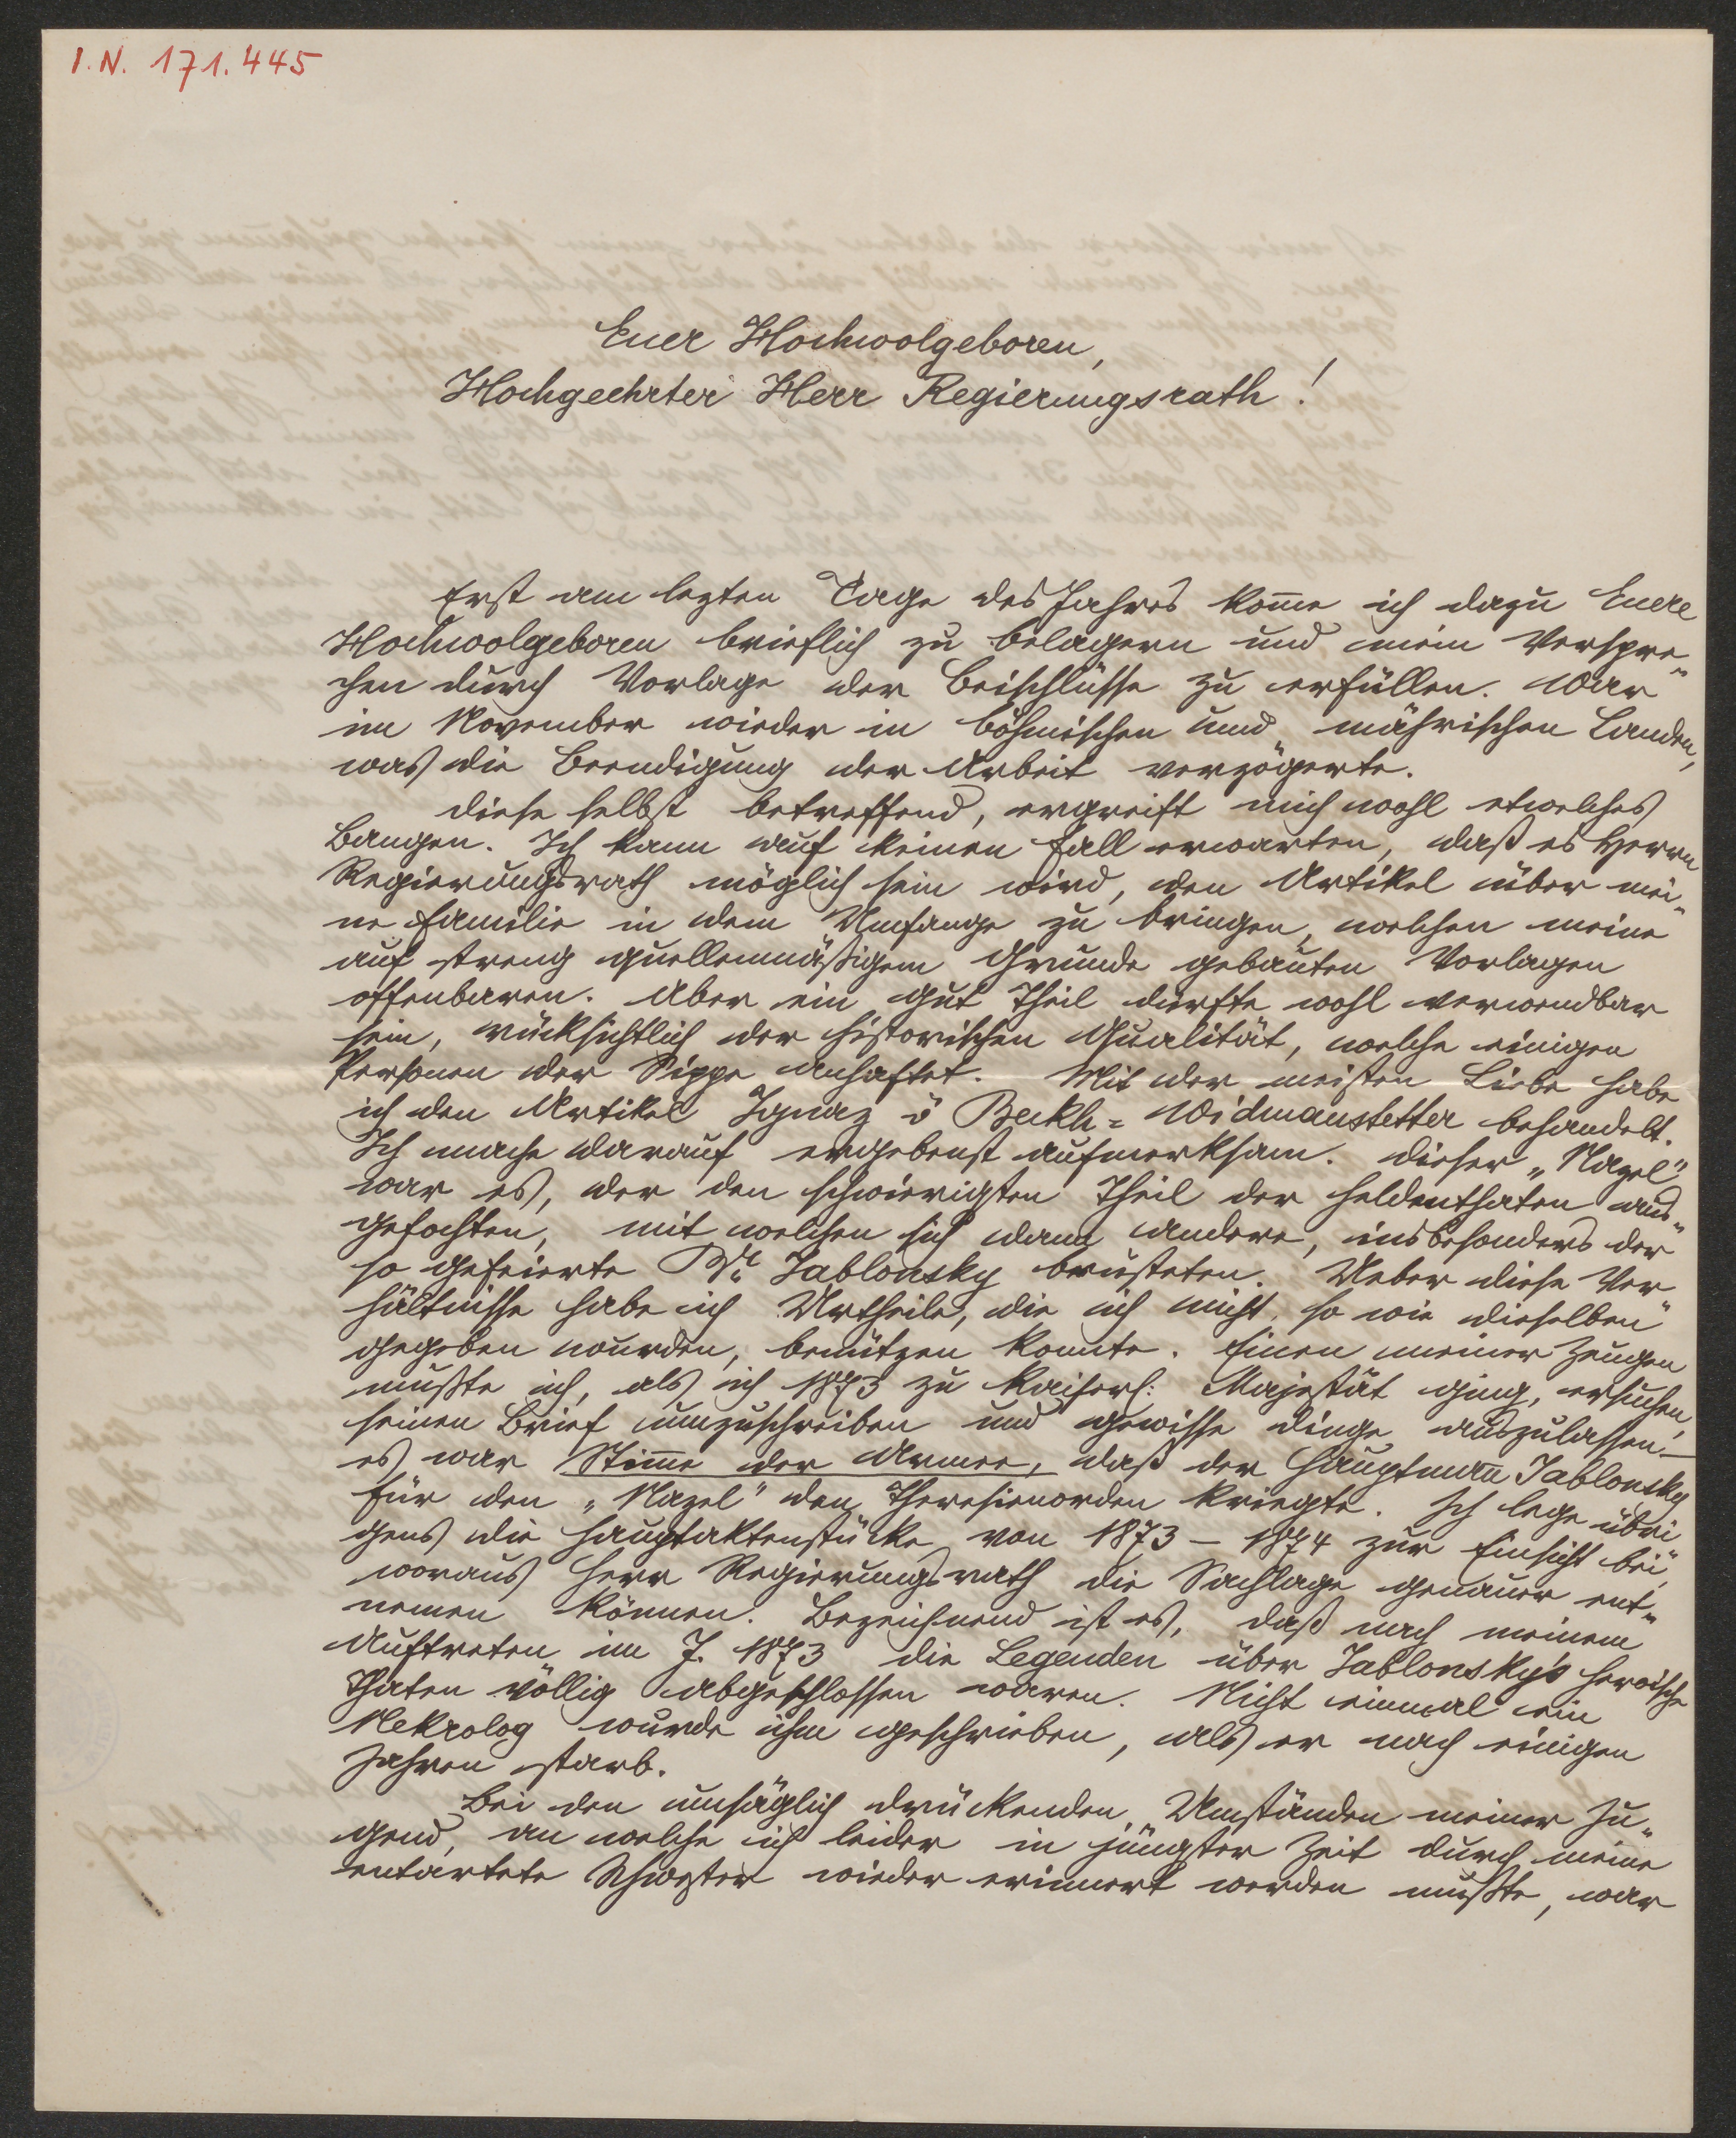 I. N. 171.445
Euer Hochwolgeboren,
Hochgeehrter Herr Regierungsrath!
Erst am lezten Tage des Jahres kome ich dazu Euere
Hochwolgeboren brieflich zu belagern und mein Verspre„
chen durch Vorlage der Beischlüsse zu erfüllen. War
im November wieder in böhmischen und mährischen Landen,
was die Beendigung der Arbeit verzögerte.
Diese selbst betreffend, ergreift mich wohl etwelches
Bangen. Ich kann auf keinen Fall erwarten, daß es Herrn
Regierungsrath möglich sein wird, den Artikel über mei„
ne Familie in dem Umfange zu bringen, welchen meine
auf streng quellenmäßigem Grunde gebauten Vorlagen
offenbaren. Aber ein gut Theil dürfte wohl verwendbar
sein, rücksichtlich der historischen Qualität, welche einigen
Personen der Sippe anhaftet. Mit der meisten Liebe habe
ich den Artikel Ignaz v Beckh = Widmanstetter behandelt.
Ich mache darauf ergebenst aufmerksam. Dieser „Nazel"
war es, der den schwierigsten Theil der Heldenthaten aus„
gefochten, mit welchen sich dann andere, insbesonders der
so gefeierte Br. Jablonsky brüsteten. Ueber diese Ver„
hältnisse habe ich Urtheile, die ich nicht so wie dieselben
gegeben wurden, benützen konnte. Einen meiner Zeugen
mußte ich, als ich 1873 zu Kaiserl: Majestät ging, ersuchen,
seinen Brief umzuschreiben und gewisse Dinge auszulassen. —
es war Stime der Armee, daß der Hauptman Jablonsky
für den „Nazel" den Theresienorden kriegte. Ich lege übri„
gens die Hauptaktenstücke von 1873 – 1874 zur Einsicht bei,
woraus Herr Regierungsrath die Sachlage genauer ent„
nemen können. Bezeichnend ist es, daß nach meinem
Auftreten im J. 1873 die Legenden über Jablonsky's heroische
Thaten völlig abgeschlossen waren. Nicht einmal ein
Nekrolog wurde ihm geschrieben, als er nach einigen
Jahren starb.
Bei den unsäglich drückenden Umständen meiner Ju„
gend, an welche ich leider in jüngster Zeit durch meine
entartete Schwester wieder erinnert werden mußte, war